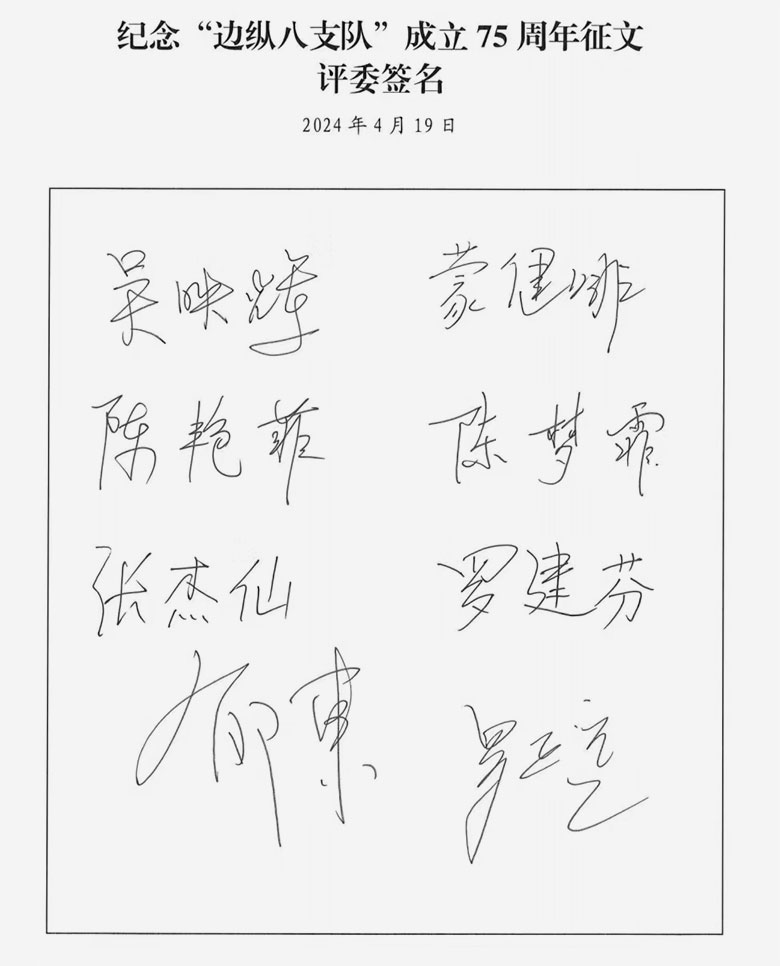 纪念“边纵八支队”成立 75 周年征文
评委签名
2024 年 4 月 19 日
吴映辉 蒙健啡
陈艳菲 陈梦霏
张杰仙 罗建芬
郁東